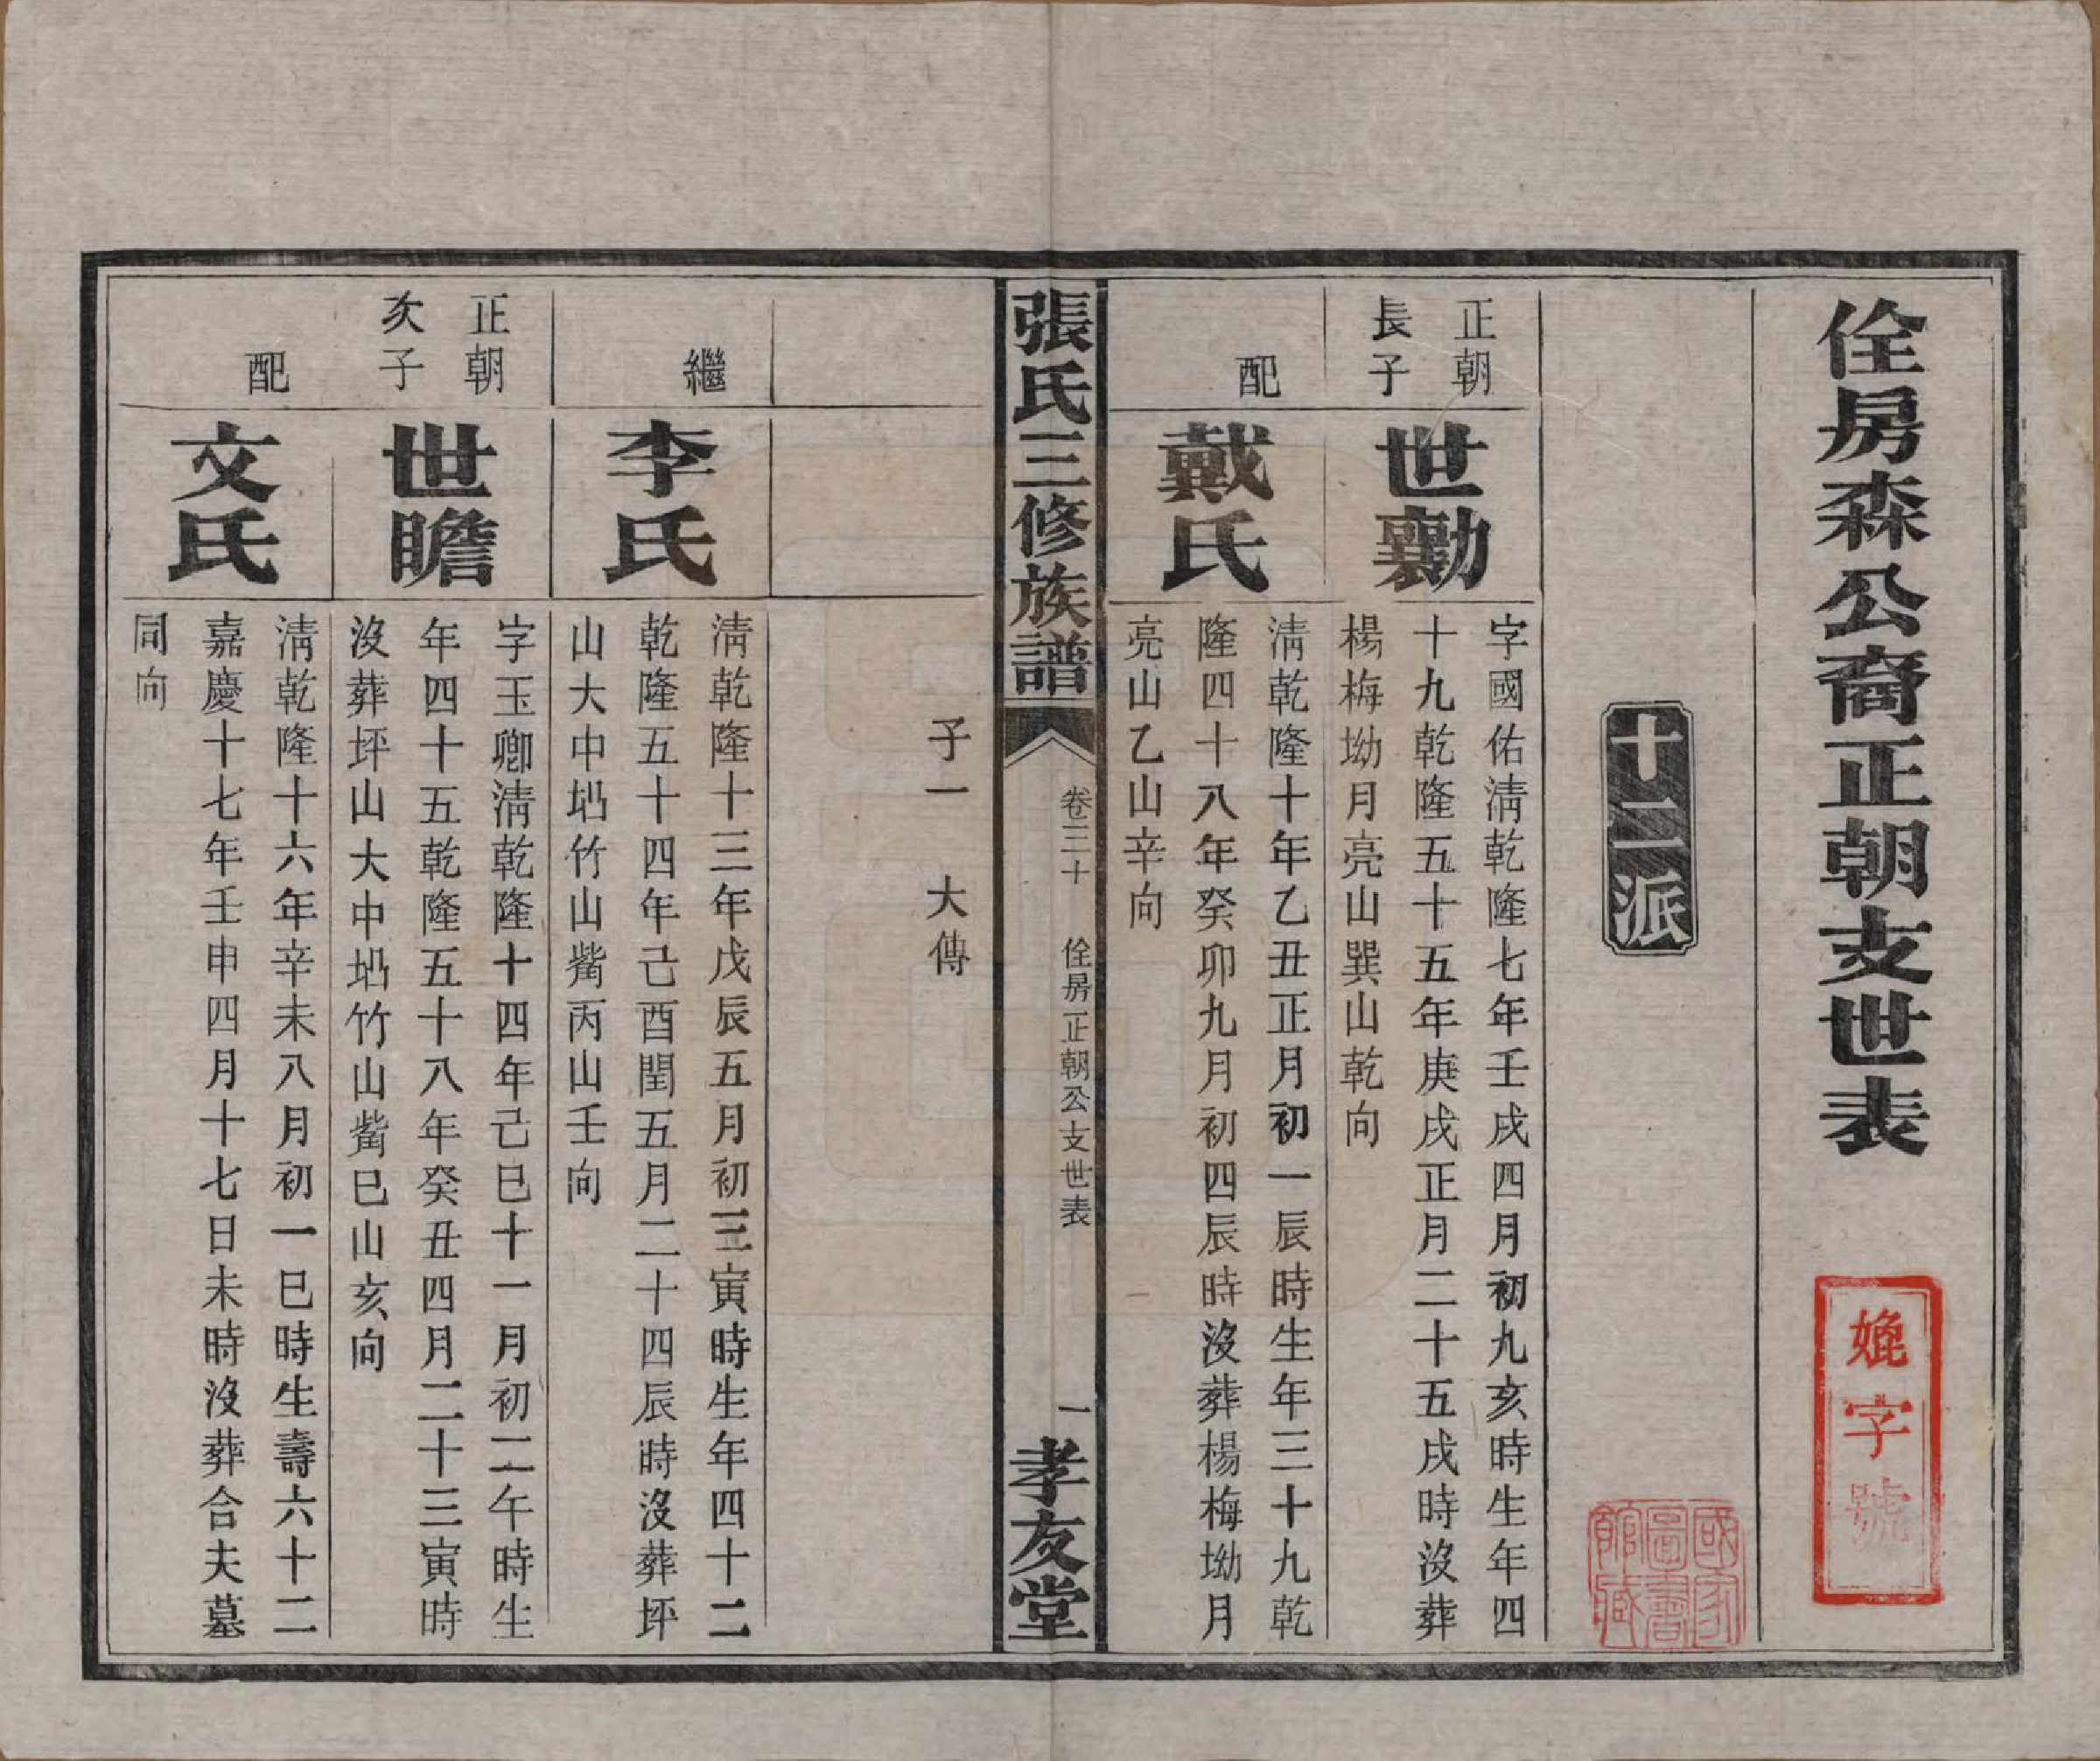 佺房森公裔正朝支世表
嬎字號
國家圖書館藏
十二派
正朝
長子
世勷
字國佑淸乾隆七年壬戌四月初九亥時生年四
十九乾隆五十五年庚戌正月二十五戌時沒葬
楊梅坳月亮山巽山乾向
配
戴氏
淸乾隆十年乙丑正月初一辰時生年三十九乾
隆四十八年癸卯九月初四辰時沒葬楊梅坳月
亮山乙山辛向
張氏三修族譜
卷三十
佺房正朝公支世表
一
孝友堂
子一 大傳
繼
李氏
淸乾隆十三年戊辰五月初三寅時生年四十二
乾隆五十四年己酉閏五月二十四辰時沒葬坪
山大中塥竹山觜丙山壬向
正朝
次子
世瞻
字玉卿淸乾隆十四年己巳十一月初二午時生
年四十五乾隆五十八年癸丑四月二十三寅時
沒葬坪山大中塥竹山觜巳山亥向
配
文氏
淸乾隆十六年辛未八月初一巳時生壽六十二
嘉慶十七年壬申四月十七日未時沒葬合夫墓
同向